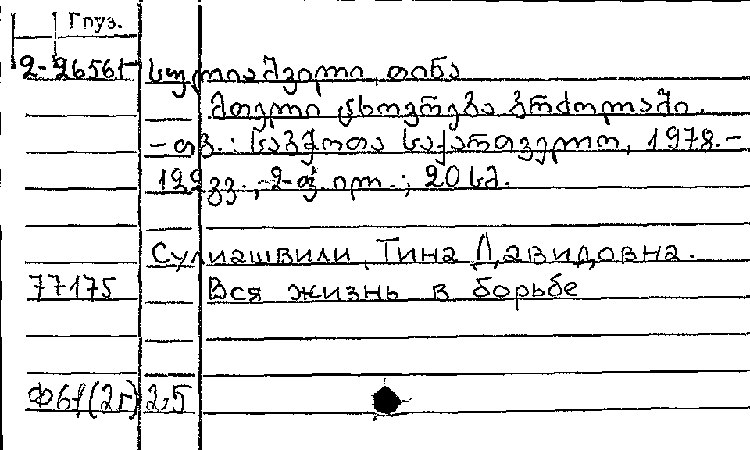 Груз.
2-26561 სულიაშვილი, თინა
მთელი ცხოვრება ბრძოლაში.
- თბ.: საბჭოთა საქართველო, 1978.-
122გვ., 2ფ. ილ.; 20სმ.
Сулиашвили, Тина Давидовна.
77175 Вся жизнь в борьбе
Ф61(2Г)2,5